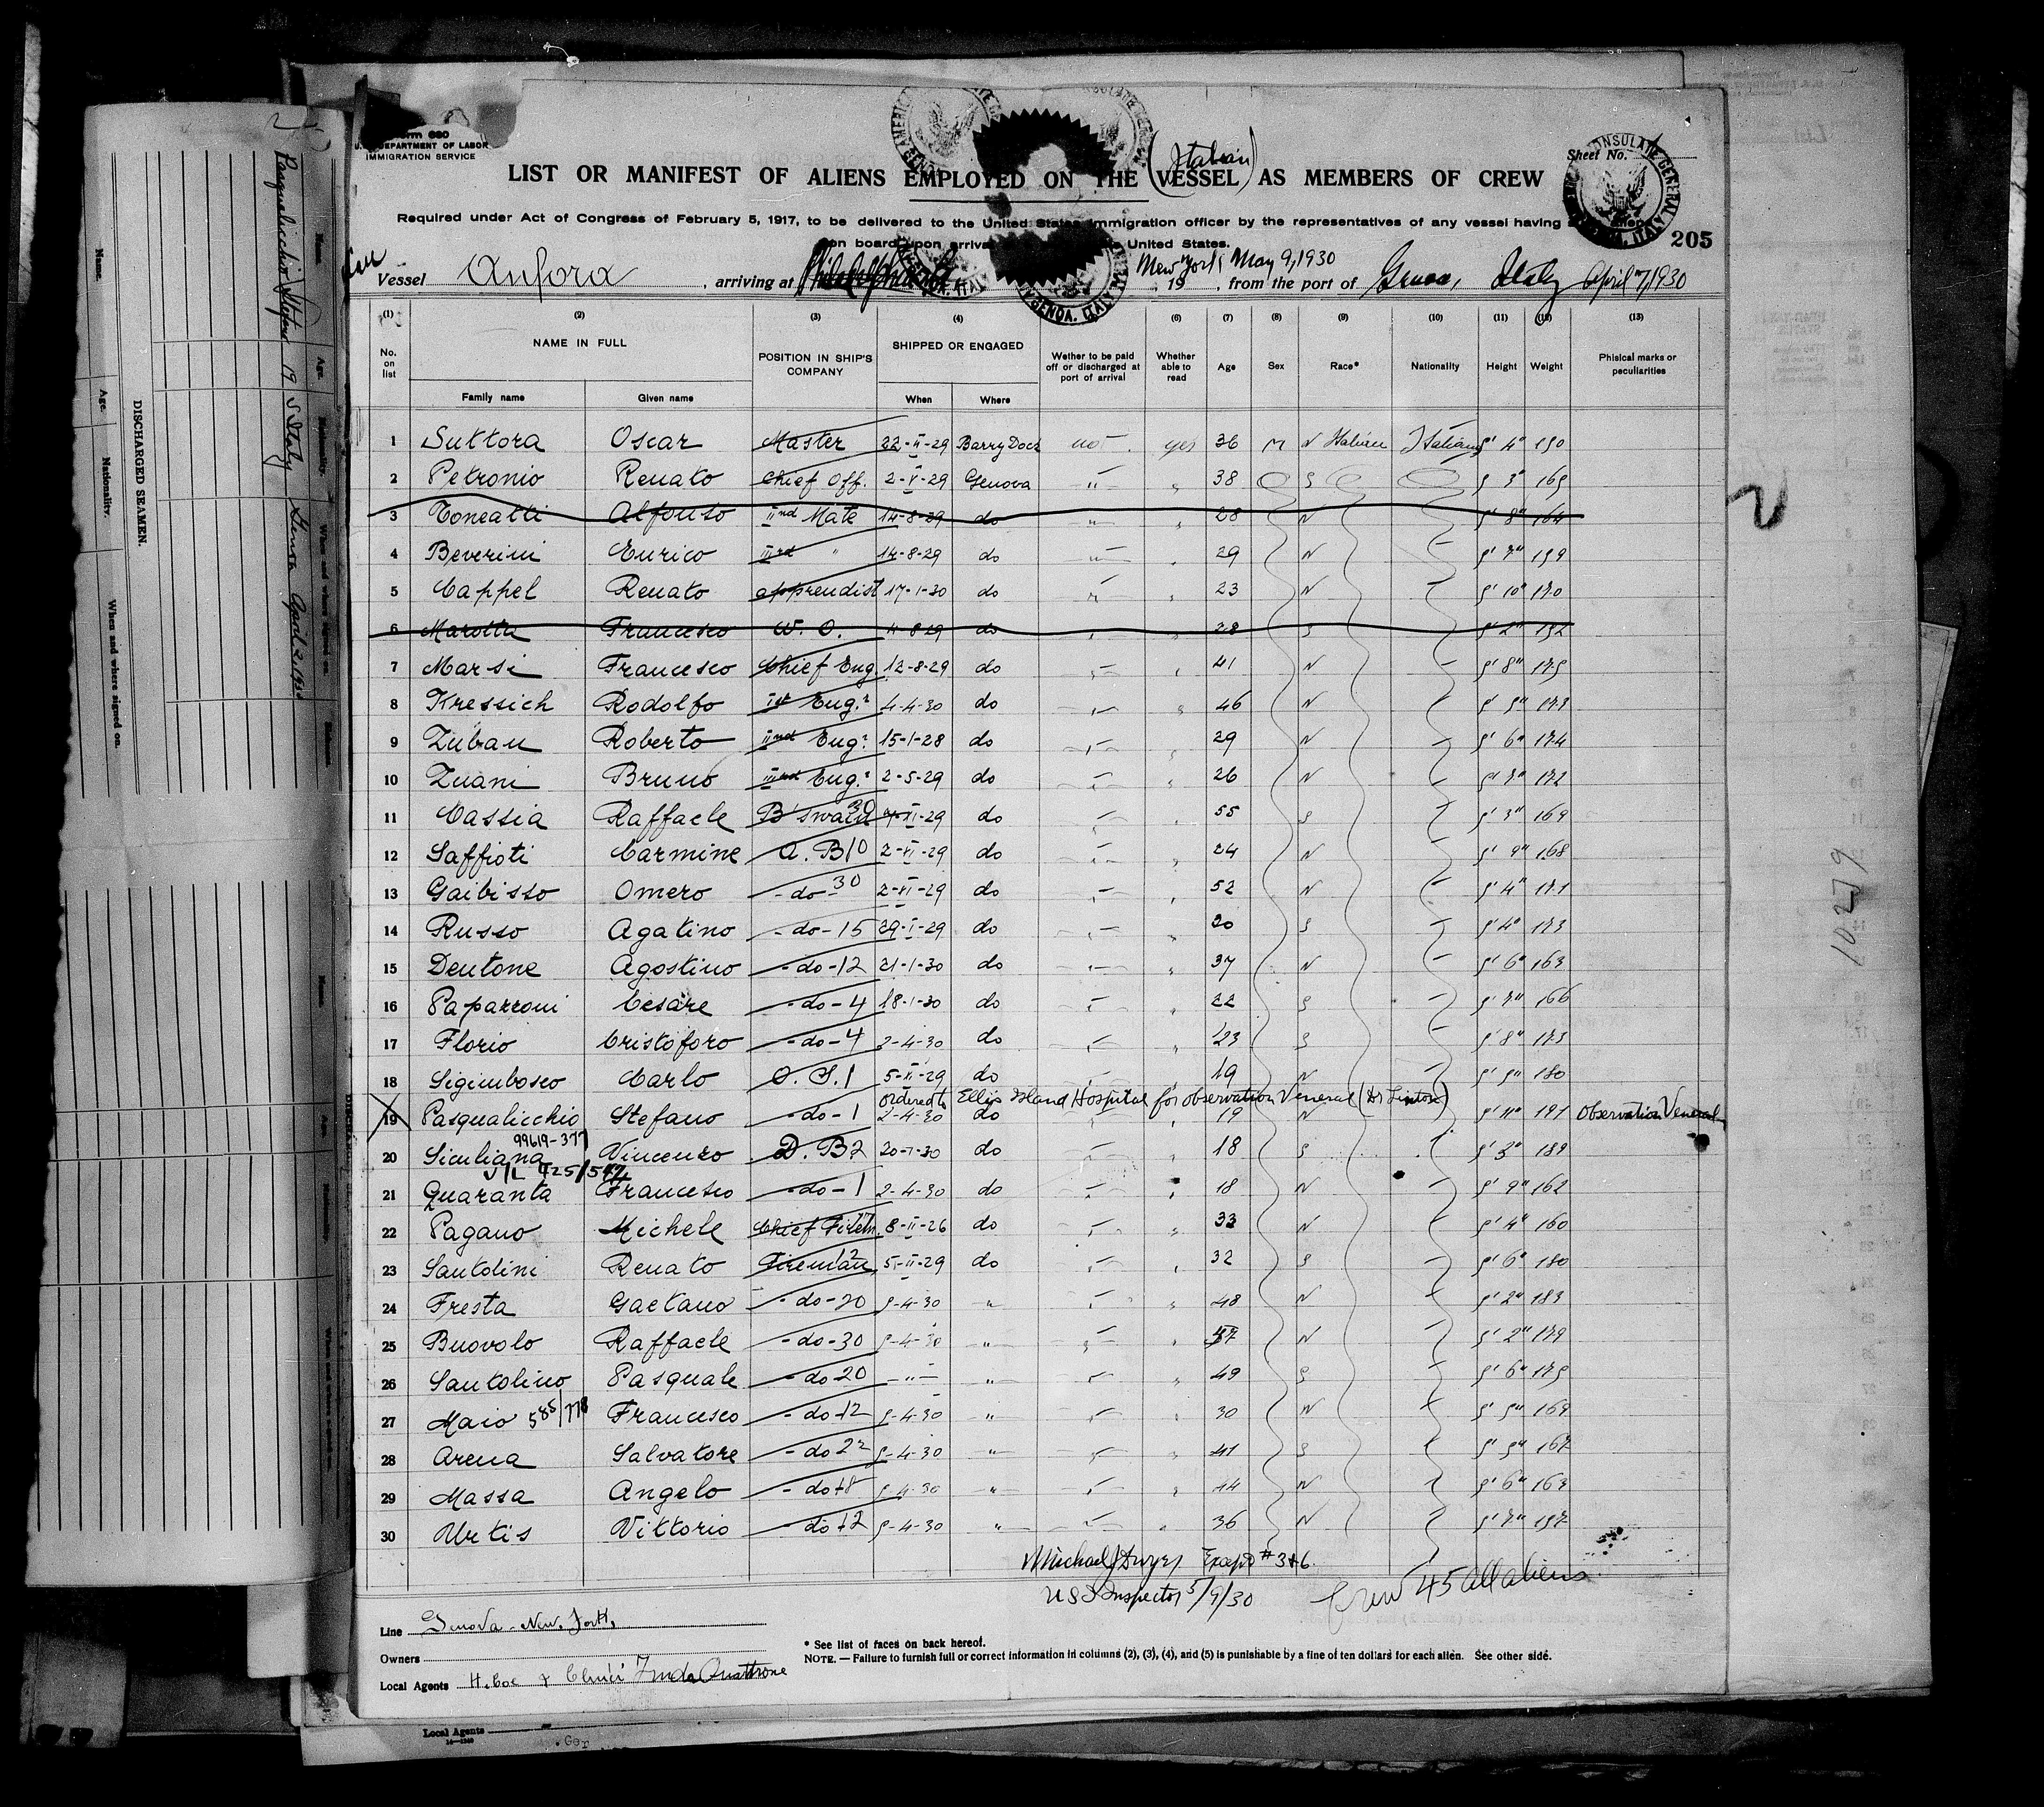 Form 680
U.S. DEPARTMENT OF LABOR
IMMIGRATION SERVICE
(Italian)
Sheet No.
LIST OR MANIFEST OF ALIENS EMPLOYED ON THE VESSEL AS MEMBERS OF CREW
Required under Act of Congress of February 5, 1917, to be delivered to the United States immigration officer by the representatives of any vessel having
on board upon arrival United States.
205
Vessel Anfora, arriving at Philadelphia New York May 9, 1930, 19 , from the port of Genoa, Italy April 7, 1930
(1) (2) (3) (4) (6) (7) (8) (9) (10) (11) (12) (13)
No. on list NAME IN FULL POSITION IN SHIP'S COMPANY SHIPPED OR ENGAGED Wether to be paid off or discharged at port of arrival Whether able to read Age Sex Race* Nationality Height Weight Phisical marks or peculiarities
Family name Given name When Where
1 Suttora Oscar Master 22-II-29 Barry Dock not yes 36 M N Italian Italian 5' 4" 150
2 Petronio Renato Chief Off. 2-V-29 Genova " " 38 S 5' 3" 165
3 Toneatti Alfonso IInd Mate 14-8-29 do " " 28 N 5' 8" 164
4 Beverini Enrico IIIrd " 14-8-29 do " " 29 N 5' 7" 159
5 Cappel Renato apprendist 17-1-30 do " " 23 N 5' 10" 170
6 Marotta Francesco W. O. 4-8-29 do " " 28 S 5' 2" 152
7 Marsi Francesco Chief Eng. 12-8-29 do " " 41 N 5' 8" 175
8 Kressich Rodolfo Ist Eng.r 4-4-30 do " " 46 N 5' 5" 173
9 Zuban Roberto IInd Eng.r 15-1-28 do " " 29 N 5' 6" 174
10 Zuani Bruno IIIrd Eng.r 2-5-29 do " " 26 N 5' 7" 172
11 Cassia Raffaele B'swain 30 -29 do " " 55 S 5' 3" 169
12 Saffioti Carmine A. B 10 2-VI-29 do " " 24 N 5' 9" 168
13 Gaibisso Omero - do - 30 2-VI-29 do " " 52 N 5' 4" 171
14 Russo Agatino - do - 15 29-I-29 do " " 30 S 5' 4" 173
15 Dentone Agostino - do - 12 21-1-30 do " " 37 N 5' 6" 163
16 Paparzoni Cesare - do - 4 18-1-30 do " " 22 S 5' 7" 166
17 Florio Cristoforo - do - 4 2-4-30 do " " 23 S 5' 8" 173
18 Sigimbosco Carlo O. S. 1 5-II-29 do " " 19 N 5' 5" 180
ordered to Ellis Island Hospital for observation Veneral (Dr Linton)
19 Pasqualicchio Stefano - do - 1 2-4-30 do " " 19 N 5' 11" 191 Observation Veneral
99619-377
20 Siculiana Vincenzo D. B 2 20-1-30 do " " 18 S 5' 3" 189
V/L 425/547
21 Quaranta Francesco - do - 1 2-4-30 do " " 18 N 5' 9" 162
22 Pagano Michele Chief Firem. 8-II-26 do " " 33 N 5' 4" 160
23 Santolini Renato Fireman 12 5-II-29 do " " 32 S 5' 6" 180
24 Fresta Gaetano - do - 20 5-4-30 " " " 48 N 5' 2" 183
25 Buovolo Raffaele - do - 30 5-4-30 " " " 47 N 5' 2" 179
26 Santolino Pasquale - do 20 - " - " " " 49 S 5' 6" 175
27 Maio 585/778 Francesco - do 12 5-4-30 " " " 30 N 5' 5" 169
28 Arena Salvatore - do 22 5-4-30 " " " 41 S 5' 5" 167
29 Massa Angelo - do 18 5-4-30 " " " 44 N 5' 6" 163
30 Urtis Vittorio - do 12 5-4-30 " " " 36 N 5' 7" 157
Michael J Dwyer Except # 3 & 6
U S I Inspector 5/9/30
Crew 45 all aliens
Line Genova - New York,
Owners
Local Agents H. Coe & Clerici
* See list of faces on back hereof.
NOTE. — Failure to furnish full or correct information in columns (2), (3), (4), and (5) is punishable by a fine of ten dollars for each alien. See other side.
Local Agents
10279
DISCHARGED SEAMEN.
Name. Age. Nationality. When and where signed on.
Pasqualicchio Stefano 19 S Italy Genoa April 2 1930
AMERICAN CONSULATE GENERAL
GENOA, ITALY